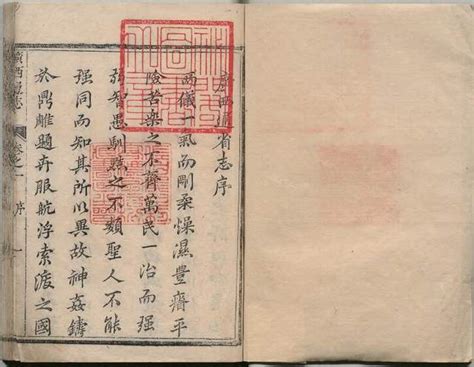 廣西通省志序
兩儀一氣而剛柔燥濕豐瘠平
險苦樂之不齊萬民一治而强
弱智愚馴黠之不類聖人不能
强同而知其所以異故神姦鑄
於鼎雕題卉服航浮索渡之國
廣西通志 卷之一 序 一